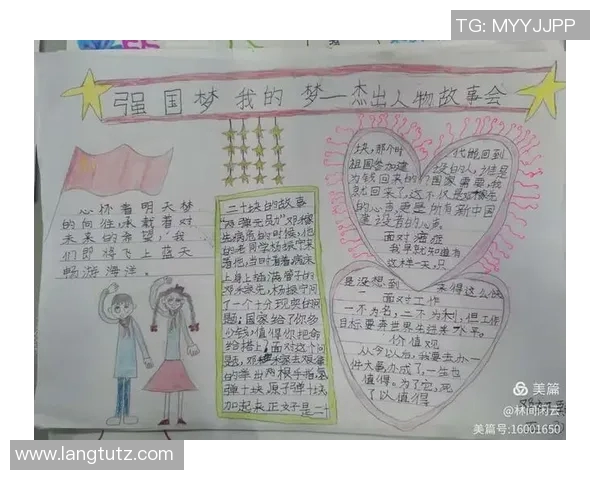 TG: MYYJJPP
强国梦 我的 梦—杰出人物故事会
心怀着明天梦
的向往,承载着对
未来的希望,我
们即将飞上蓝天
畅游海洋。
二十块的故事
"两弹元勋"邓稼先
生病危的时候,他
的老同学杨振宁来
看他,当时看着病床
上身上插满管子的
邓稼先,杨振宁问
了一个十分现实的问
题:国家给了你多
少钱,值得你把命
给搭上,面对这个问
题,邓稼先
的举出两根手指氢
弹十块,原子弹十块
加起来正好是二十
块,那个时代能回到
祖国参加建设的人,谁是
为钱回来的?国家需要,我
就回来了,这不仅是邓稼先
的心声,更是所有新中国
建设者的心声
面对海盗
我早就知道有
这样一天,只
是没想到 来得这么快
面对工作
一不为名,二不为利,但工作
目标要奔世界先进水平。
价值观
从今以后,我要去办一
件大事,办成了,一生也
值得。为了它,死
了以值得
美篇
@林间闲云
美篇号:16001650
www.langtutz.com